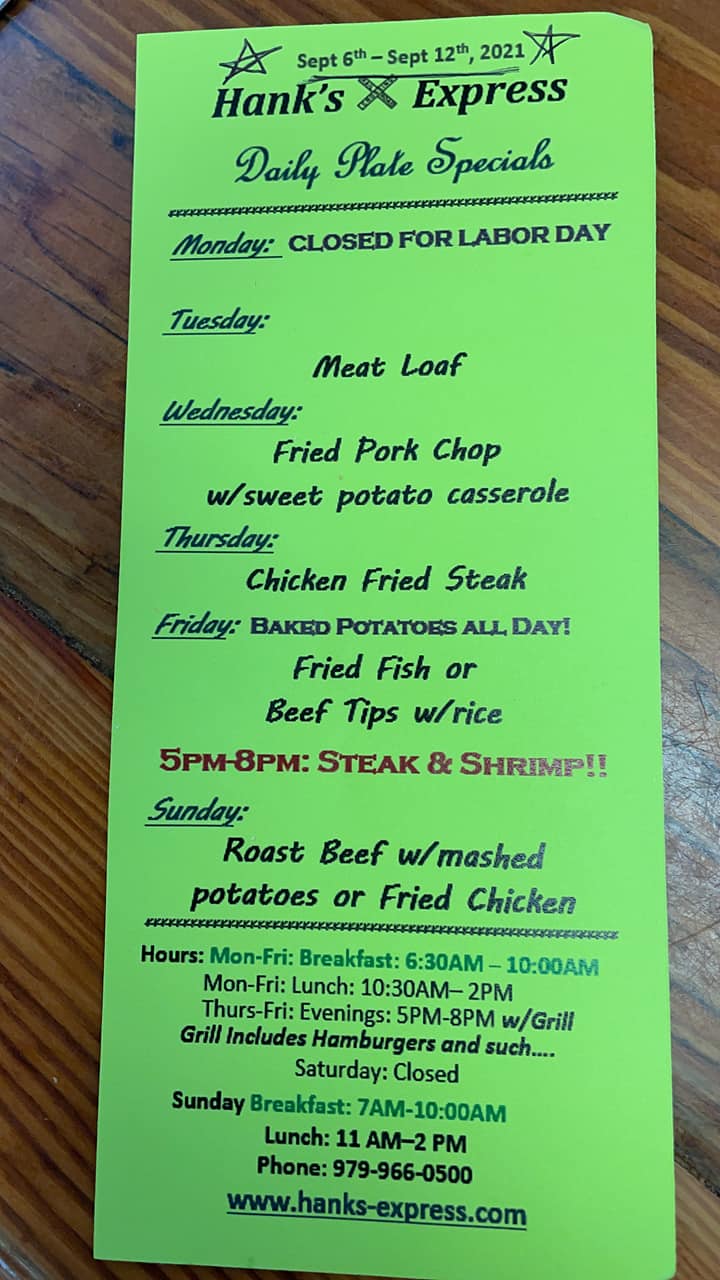 Sept 6th – Sept 12th, 2021
Hank's Express
Daily Plate Specials
Monday: CLOSED FOR LABOR DAY
Tuesday:
Meat Loaf
Wednesday:
Fried Pork Chop
w/sweet potato casserole
Thursday:
Chicken Fried Steak
Friday: BAKED POTATOES ALL DAY!
Fried Fish or
Beef Tips w/rice
5PM-8PM: STEAK & SHRIMP!!
Sunday:
Roast Beef w/mashed
potatoes or Fried Chicken
Hours: Mon-Fri: Breakfast: 6:30AM – 10:00AM
Mon-Fri: Lunch: 10:30AM– 2PM
Thurs-Fri: Evenings: 5PM-8PM w/Grill
Grill Includes Hamburgers and such....
Saturday: Closed
Sunday Breakfast: 7AM-10:00AM
Lunch: 11 AM–2 PM
Phone: 979-966-0500
www.hanks-express.com